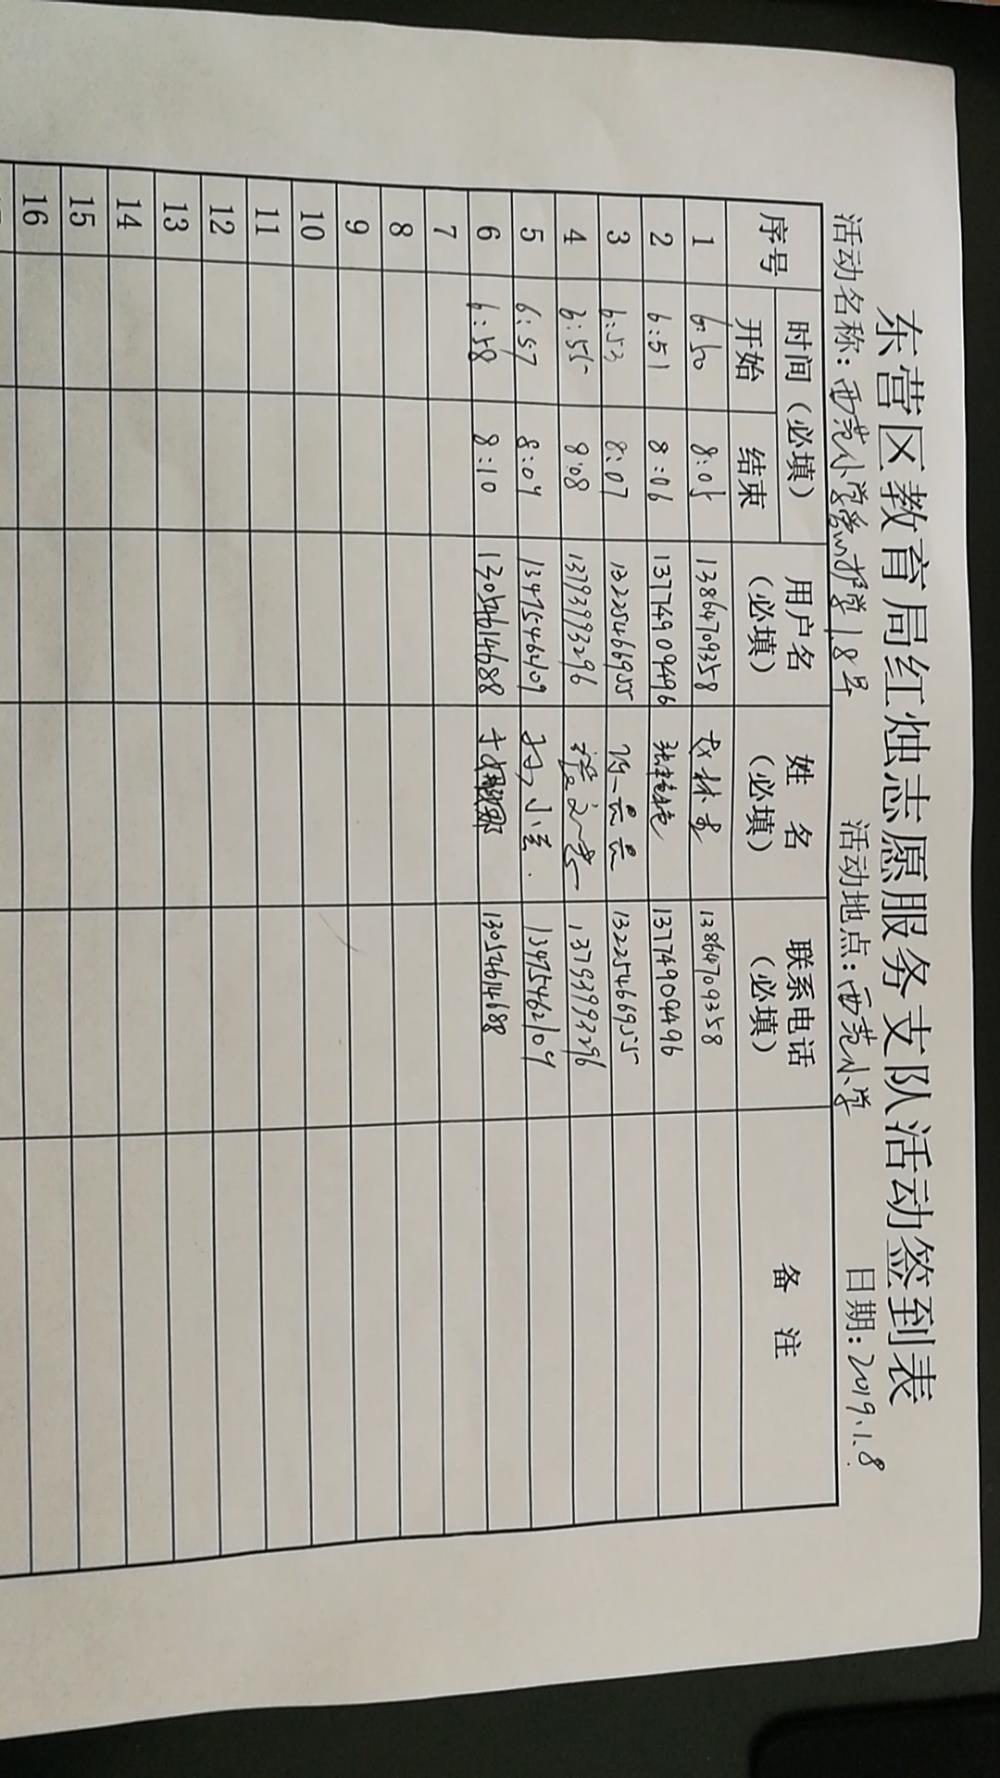 东营区教育局红烛志愿服务支队活动签到表
活动名称：西范小学爱心护学1.8号 活动地点：西范小学 日期：2019.1.8
序号 时间（必填） 用户名（必填） 姓名（必填） 联系电话（必填） 备注
开始 结束
1 6:50 8:05 13864709358 13864709358
2 6:51 8:06 13774909496 13774909496
3 6:53 8:07 13225466955 13225466955
4 6:55 8:08 13793993296 13793993296
5 6:57 8:09 13475462109 13475462109
6 6:58 8:10 13054614688 13054614688
7
8
9
10
11
12
13
14
15
16